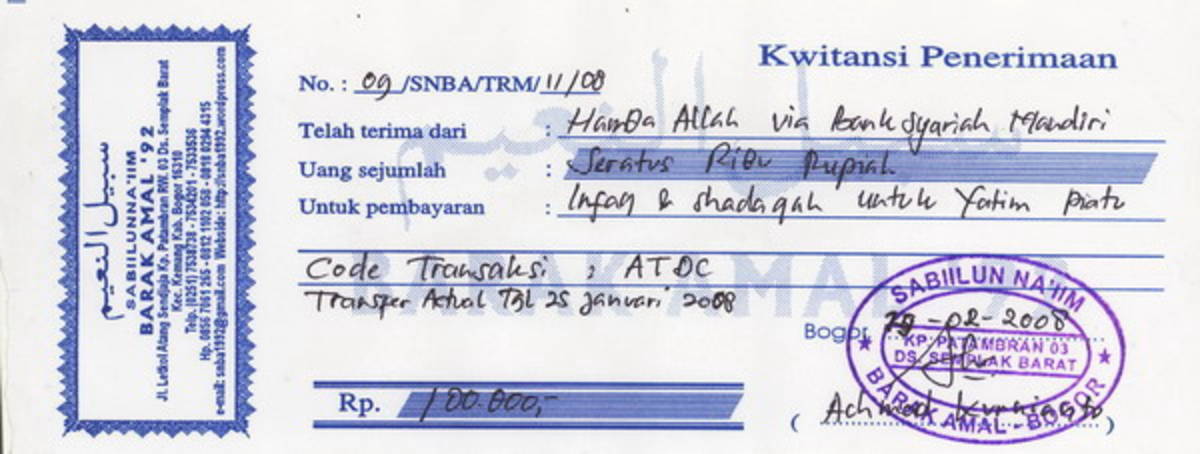 سبيل النعيم
SABIILUNNA'IIM
BARAK AMAL '92
Jl. Letkol Atang Sendjaja Kp. Patambran RW. 03 Ds. Semplak Barat
Kec. Kemang Kab. Bogor 1610
Telp. (0251) 7538738 - 7534201 - 7533536
Hp. 0856 7061 265 - 0812 1102 658 - 0818 0294 4315
e-mail: snba1992@gmail.com Webside: http://snba1992.wordpress.com
Kwitansi Penerimaan
No. : 09 /SNBA/TRM/ 11/08
Telah terima dari : Hamba Allah via Bank Syariah Mandiri
Uang sejumlah : Seratus Ribu Rupiah
Untuk pembayaran : Infaq & shadaqah untuk Yatim piatu
Code Transaksi : ATDC
Transfer Actual Tgl 25 januari 2008
سبيل النعيم
BARAK AMAL '92
Bogor, -02-2008
SABIILUN NA'IIM
KP. PATAMBRAN 03
DS. SEMPLAK BARAT
BARAK AMAL - BOGOR
Rp. 100.000,-
( Achmad )